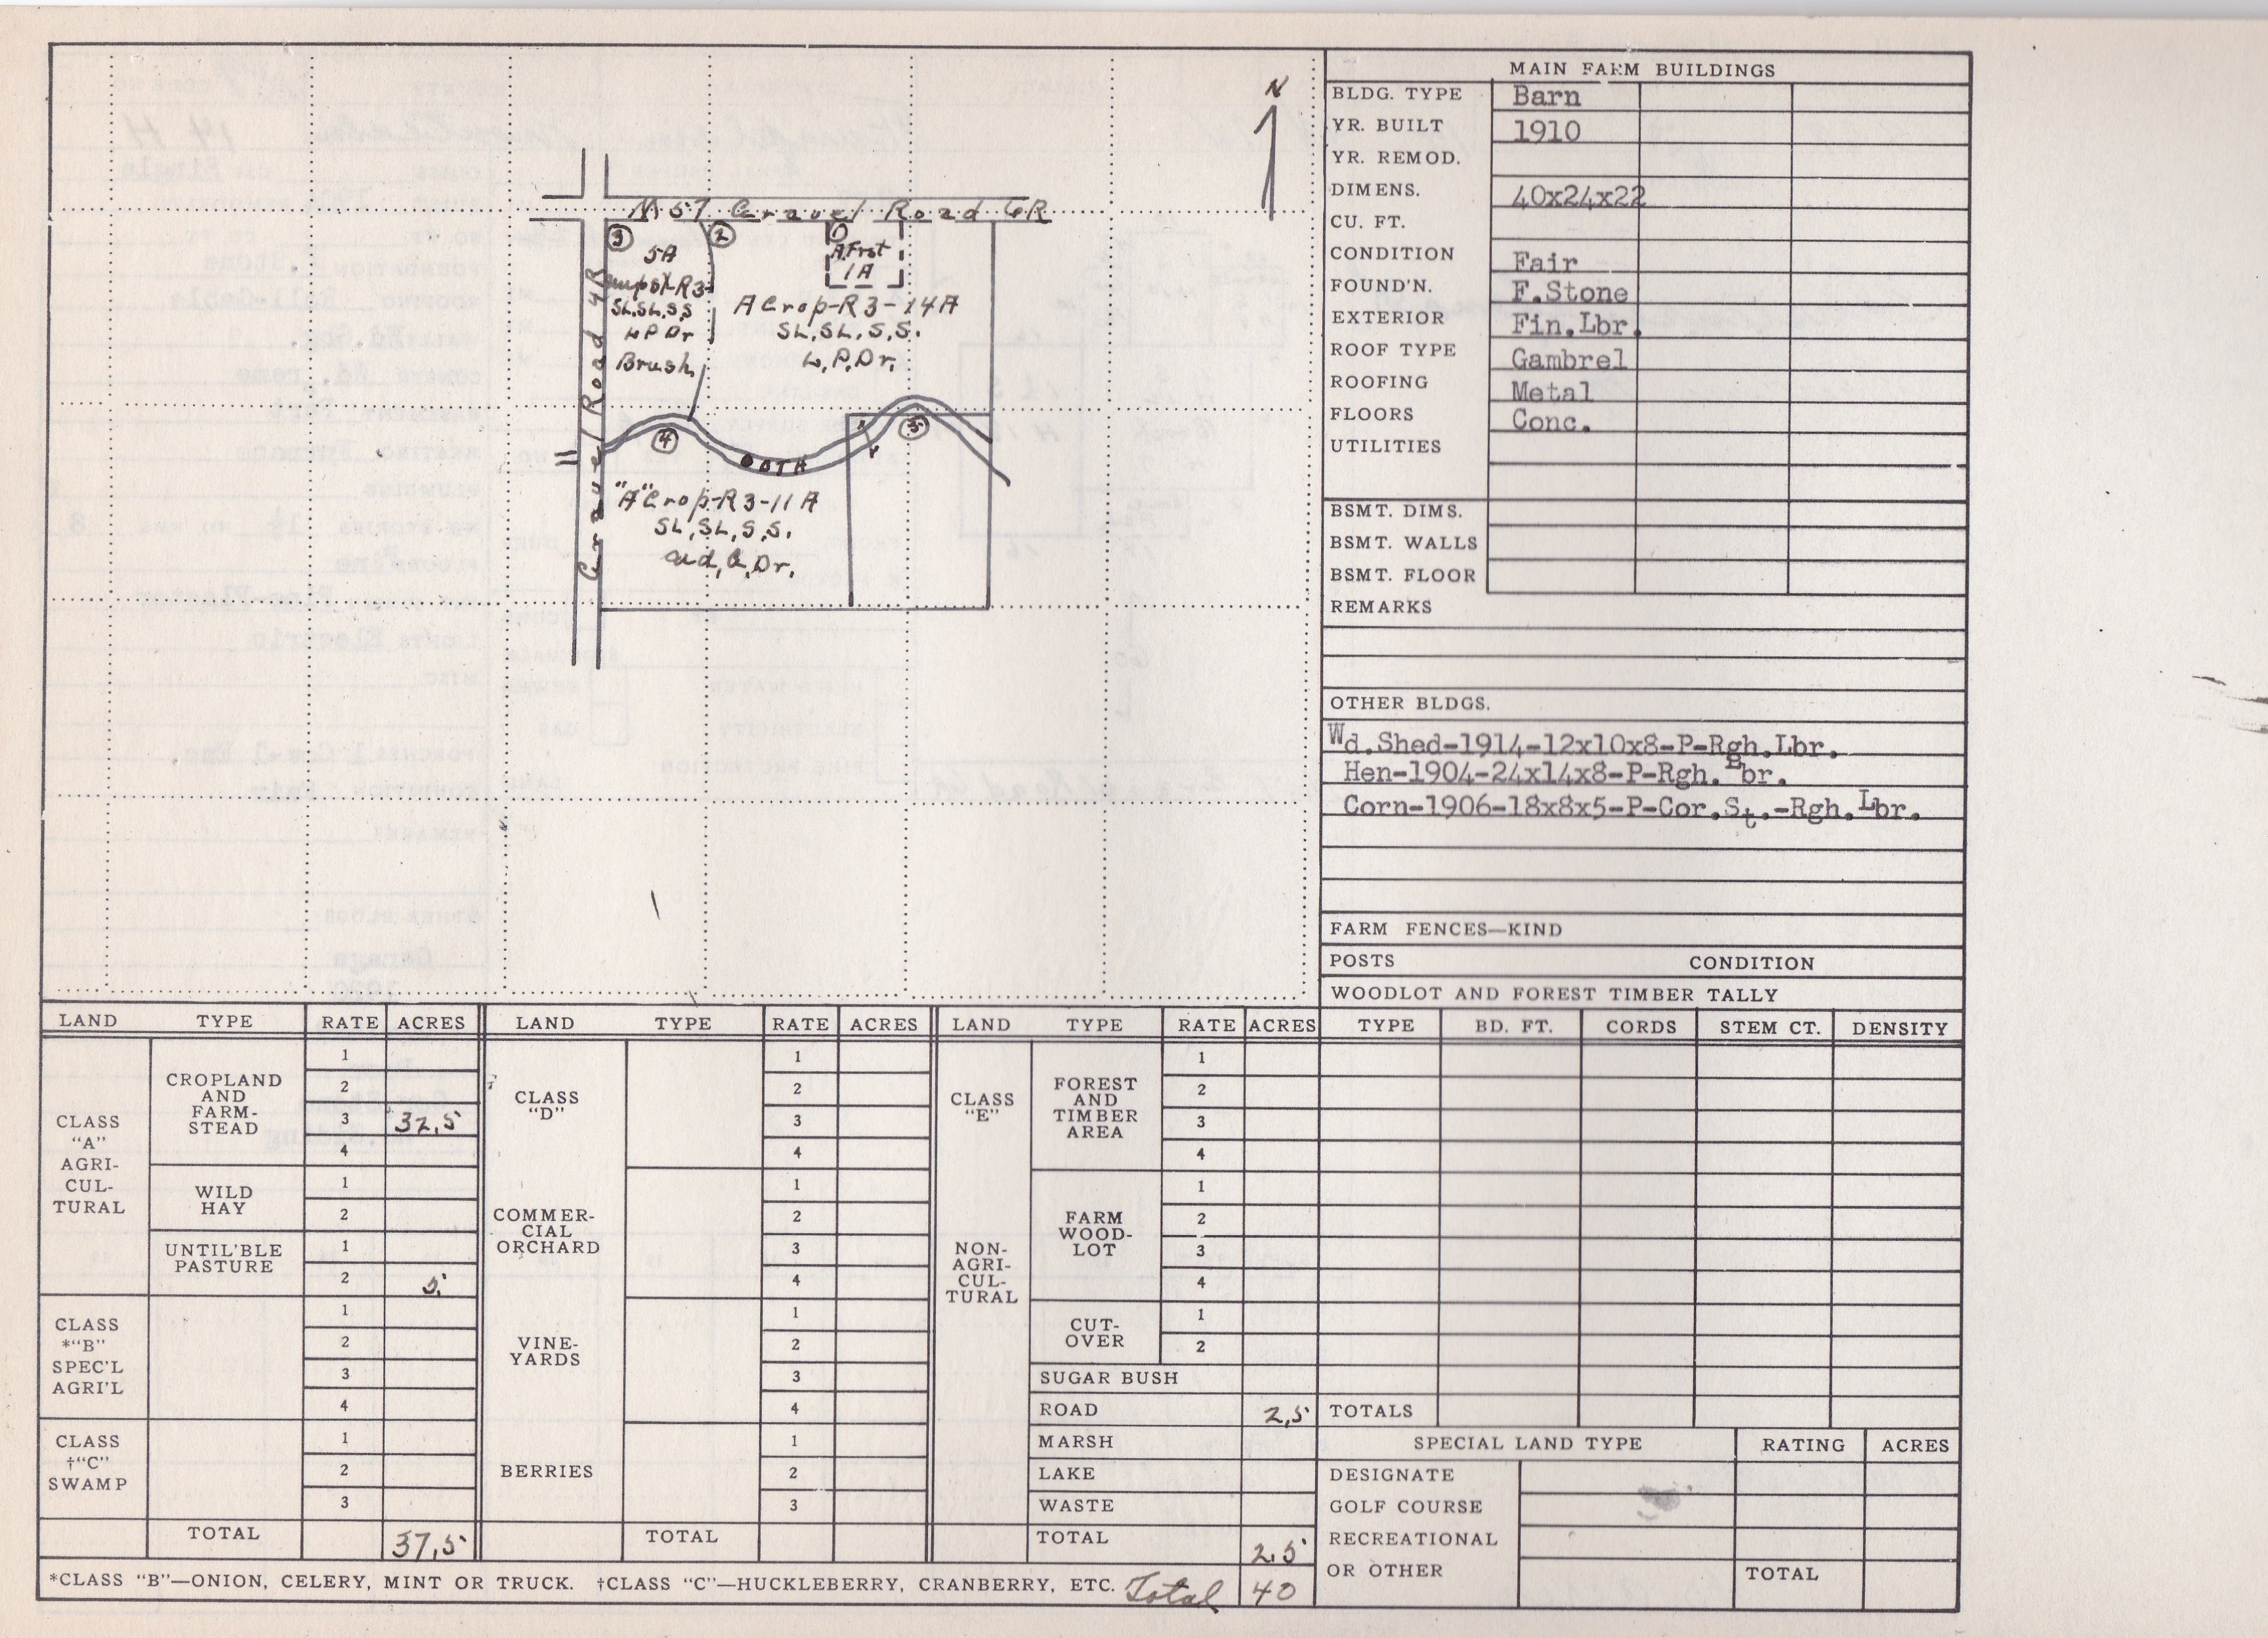 N
M 57 Gravel Road 6R
Gravel Road 4R
3
5A
R3-
SL, SL, S.S
L P Dr
Brush
2
A Frst
1A
A Crop-R3-14A
SL, SL, S, S.
L, P, Dr,
4
5
"A" Crop-R3-11A
SL, SL, S, S.
Dr.
MAIN FARM BUILDINGS
BLDG. TYPE Barn
YR. BUILT 1910
YR. REMOD.
DIMENS. 40x24x22
CU. FT.
CONDITION Fair
FOUND'N. F.Stone
EXTERIOR Fin.Lbr.
ROOF TYPE Gambrel
ROOFING Metal
FLOORS Conc.
UTILITIES
BSMT. DIMS.
BSMT. WALLS
BSMT. FLOOR
REMARKS
OTHER BLDGS.
Wd.Shed-1914-12x10x8-P-Rgh.Lbr.
Hen-1904-24x14x8-P-Rgh.Lbr.
Corn-1906-18x8x5-P-Cor.St.-Rgh.Lbr.
FARM FENCES—KIND
POSTS CONDITION
WOODLOT AND FOREST TIMBER TALLY
TYPE BD. FT. CORDS STEM CT. DENSITY
TOTALS
LAND TYPE RATE ACRES
CLASS
"A"
AGRI-
CUL-
TURAL
CROPLAND
AND
FARM-
STEAD
1
2
3 32,5
4
WILD
HAY
1
2
UNTIL'BLE
PASTURE
1
2 5
CLASS
*"B"
SPEC'L
AGRI'L
1
2
3
4
CLASS
†"C"
SWAMP
1
2
3
TOTAL 37,5
LAND TYPE RATE ACRES
CLASS
"D"
1
2
3
4
COMMER-
CIAL
ORCHARD
1
2
3
4
VINE-
YARDS
1
2
3
4
BERRIES
1
2
3
TOTAL
LAND TYPE RATE ACRES
CLASS
"E"
NON-
AGRI-
CUL-
TURAL
FOREST
AND
TIMBER
AREA
1
2
3
4
FARM
WOOD-
LOT
1
2
3
4
CUT-
OVER
1
2
SUGAR BUSH
ROAD 2,5
MARSH
LAKE
WASTE
TOTAL 2,5
SPECIAL LAND TYPE RATING ACRES
DESIGNATE
GOLF COURSE
RECREATIONAL
OR OTHER
TOTAL
*CLASS "B"—ONION, CELERY, MINT OR TRUCK. †CLASS "C"—HUCKLEBERRY, CRANBERRY, ETC. Total 40